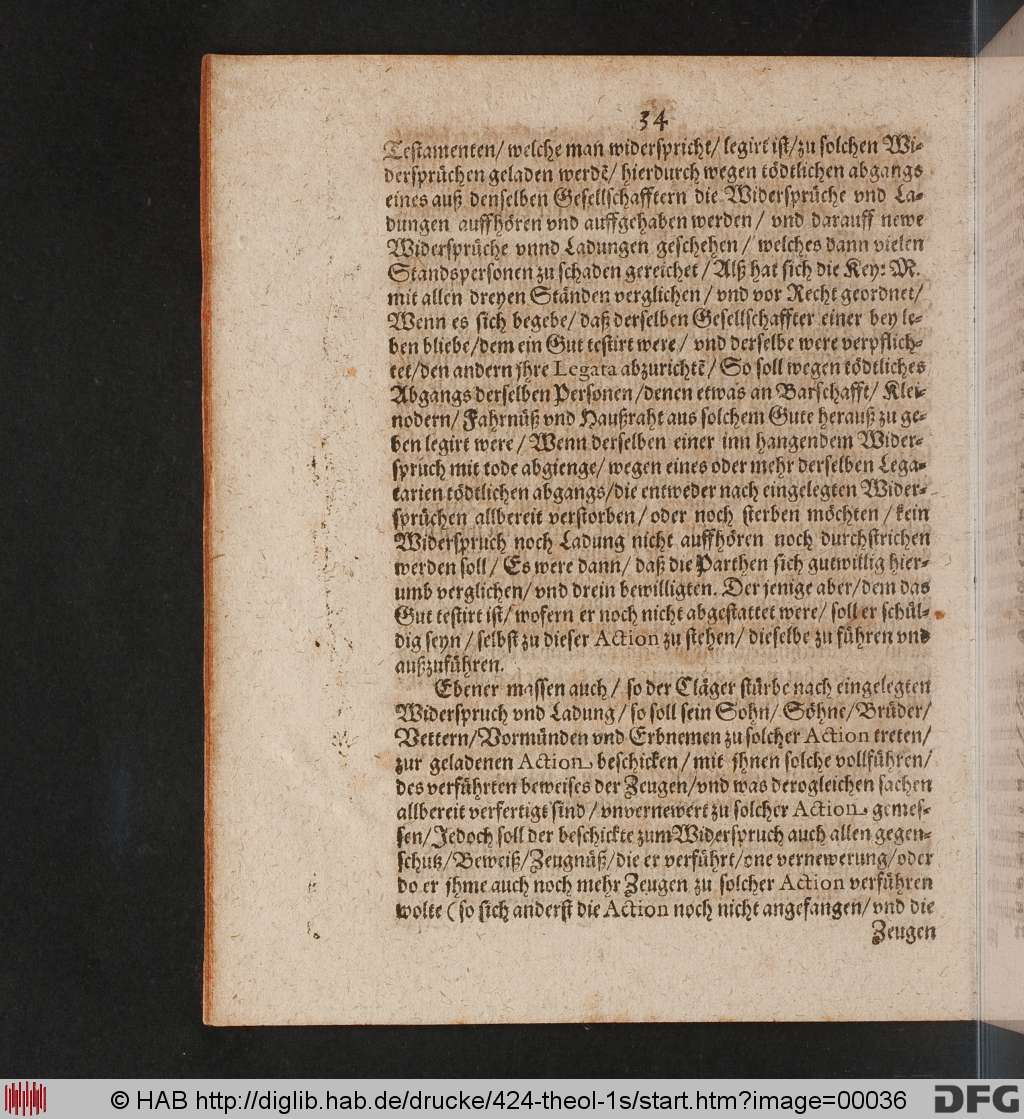 34
Testamenten/ welche man widerspricht/ legirt ist/ zu solchen Wi-
dersprüchen geladen werdẽ/ hierdurch wegen tödtlichen abgangs
eines auß denselben Gesellschafftern die Widersprüche vnd La-
dungen auffhören vnd auffgehaben werden/ vnd darauff newe
Widersprüche vnnd Ladungen geschehen/ welches dann vielen
Standspersonen zu schaden gereichet/ Alß hat sich die Key: M.
mit allen dreyen Ständen verglichen/ vnd vor Recht geordnet/
Wenn es sich begebe/ daß derselben Gesellschaffter einer bey le-
ben bliebe/ dem ein Gut testirt were/ vnd derselbe were verpflich-
tet/ den andern jhre Legata abzurichtẽ/ So soll wegen tödtliches
Abgangs derselben Personen/ denen etwas an Barschafft/ Klei-
nodern/ Fahrnüß vnd Haußraht aus solchem Gute herauß zu ge-
ben legirt were/ Wenn derselben einer inn hangendem Wider-
spruch mit tode abgienge/ wegen eines oder mehr derselben Lega-
tarien tödtlichen abgangs/ die entweder nach eingelegten Wider-
sprüchen allbereit verstorben/ oder noch sterben möchten/ kein
Widerspruch noch Ladung nicht auffhören noch durchstrichen
werden soll/ Es were dann/ daß die Parthen sich gutwillig hier-
umb verglichen/ vnd drein bewilligten. Der jenige aber/ dem das
Gut testirt ist/ wofern er noch nicht abgestattet were/ soll er schül-
dig seyn/ selbst zu dieser Action zu stehen/ dieselbe zu führen vnd
außzuführen.
Ebener massen auch/ so der Cläger stürbe nach eingelegten
Widerspruch vnd Ladung/ so soll sein Sohn/ Söhne/ Brüder/
Vettern/ Vormünden vnd Erbnemen zu solcher Action treten/
zur geladenen Action beschicken/ mit jhnen solche vollführen/
des verführten beweises der Zeugen/ vnd was derogleichen sachen
allbereit verfertigt sind/ vnvernewert zu solcher Action gemes-
sen/ Jedoch soll der beschickte zum Widerspruch auch allen gegen-
schutz/ Beweiß/ Zeugnüß/ die er verführt/ one vernewerung/ oder
do er jhme auch noch mehr Zeugen zu solcher Action verführen
wolte (so sich anderst die Action noch nicht angefangen/ vnd die
Zeugen
© HAB http://diglib.hab.de/drucke/424-theol-1s/start.htm?image=00036
DFG